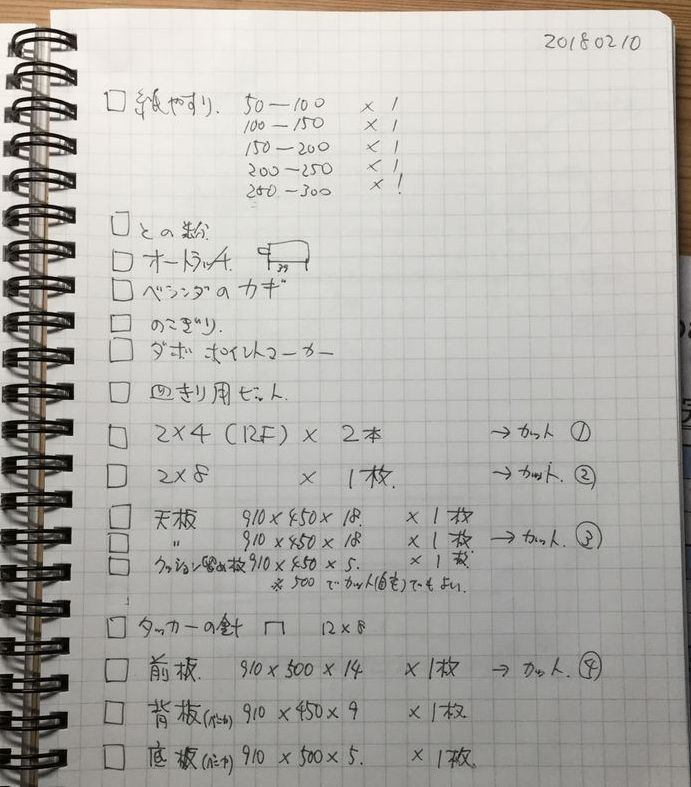 20180210
□ 紙やすり. 50－100 × 1
100－150 × 1
150－200 × 1
200－250 × 1
250－300 × 1
□ との粉
□ オートラッチ. 39
□ ベランダのカギ
□ のこぎり.
□ ダボ ポイントマーカー
□ 皿きり用ビット.
□ 2×4 (12F) × 2本 → カット ①
□ 2×8 × 1枚. → カット. ②
□ 天板 910×450×18. × 1枚
□ 〃 910×450×18 × 1枚 → カット. ③
□ クッション留め板 910×450×5. × 1枚
※ 500 でカット(自宅)でもよい.
□ タッカーの針 12×8
□ 前板. 910×500×14 × 1枚 → カット. ④
□ 背板(ベニヤ) 910×450×9 × 1枚
□ 底板(ベニヤ) 910×500×5. × 1枚.